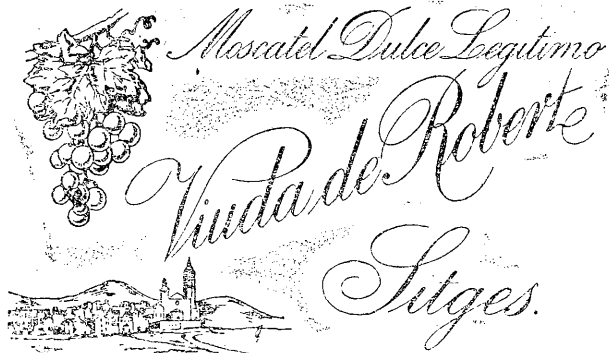 Moscatel Dulce Legitimo
Viuda de Robert
Sitges.